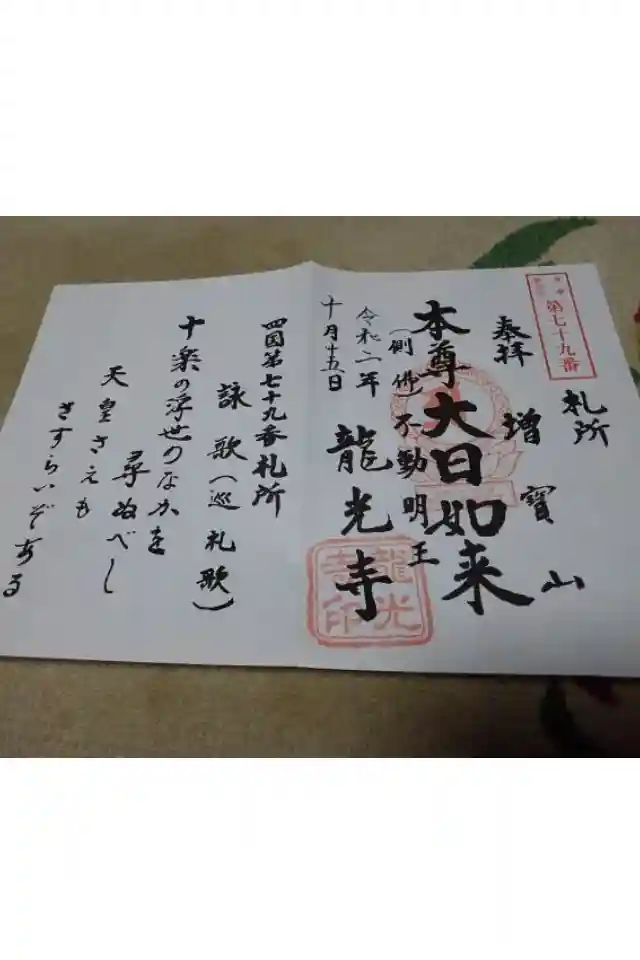 第七十九番
札所
奉拝
増寳山
本尊大日如来
(側佛)不動明王
龍光寺
令和二年
十月十五日
龍光寺印
四国第七十九番札所
詠歌(巡礼歌)
十楽の浮世のなかを
尋ぬべし
天皇さえも
さすらいぞある